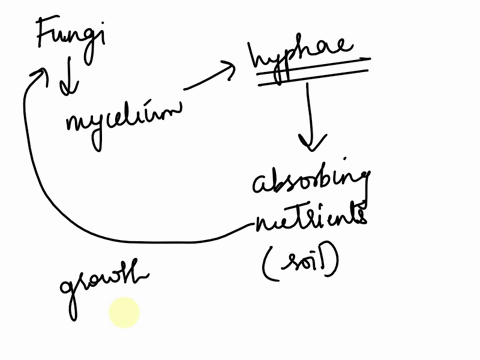 Fungi
mycelium
hyphae
absorbing
nutrients
(soil)
growth